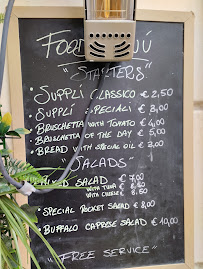 FOOD MENÚ
"STARTERS"
• SUPPLÍ CLASSICO € 2,50
• SUPPLÍ SPECIALI € 3,00
• BRUSCHETTA WITH TOMATO € 4,00
• BRUSCHETTA OF THE DAY € 5,00
• BREAD WITH SPECIAL OIL € 2,00
"SALADS"
MIXED SALAD € 7,00
WITH TUNA € 8,50
WITH CHEESE € 8,50
• SPECIAL POCKET SALAD € 8,00
• BUFFALO CAPRESE SALAD € 10,00
"FREE SERVICE"